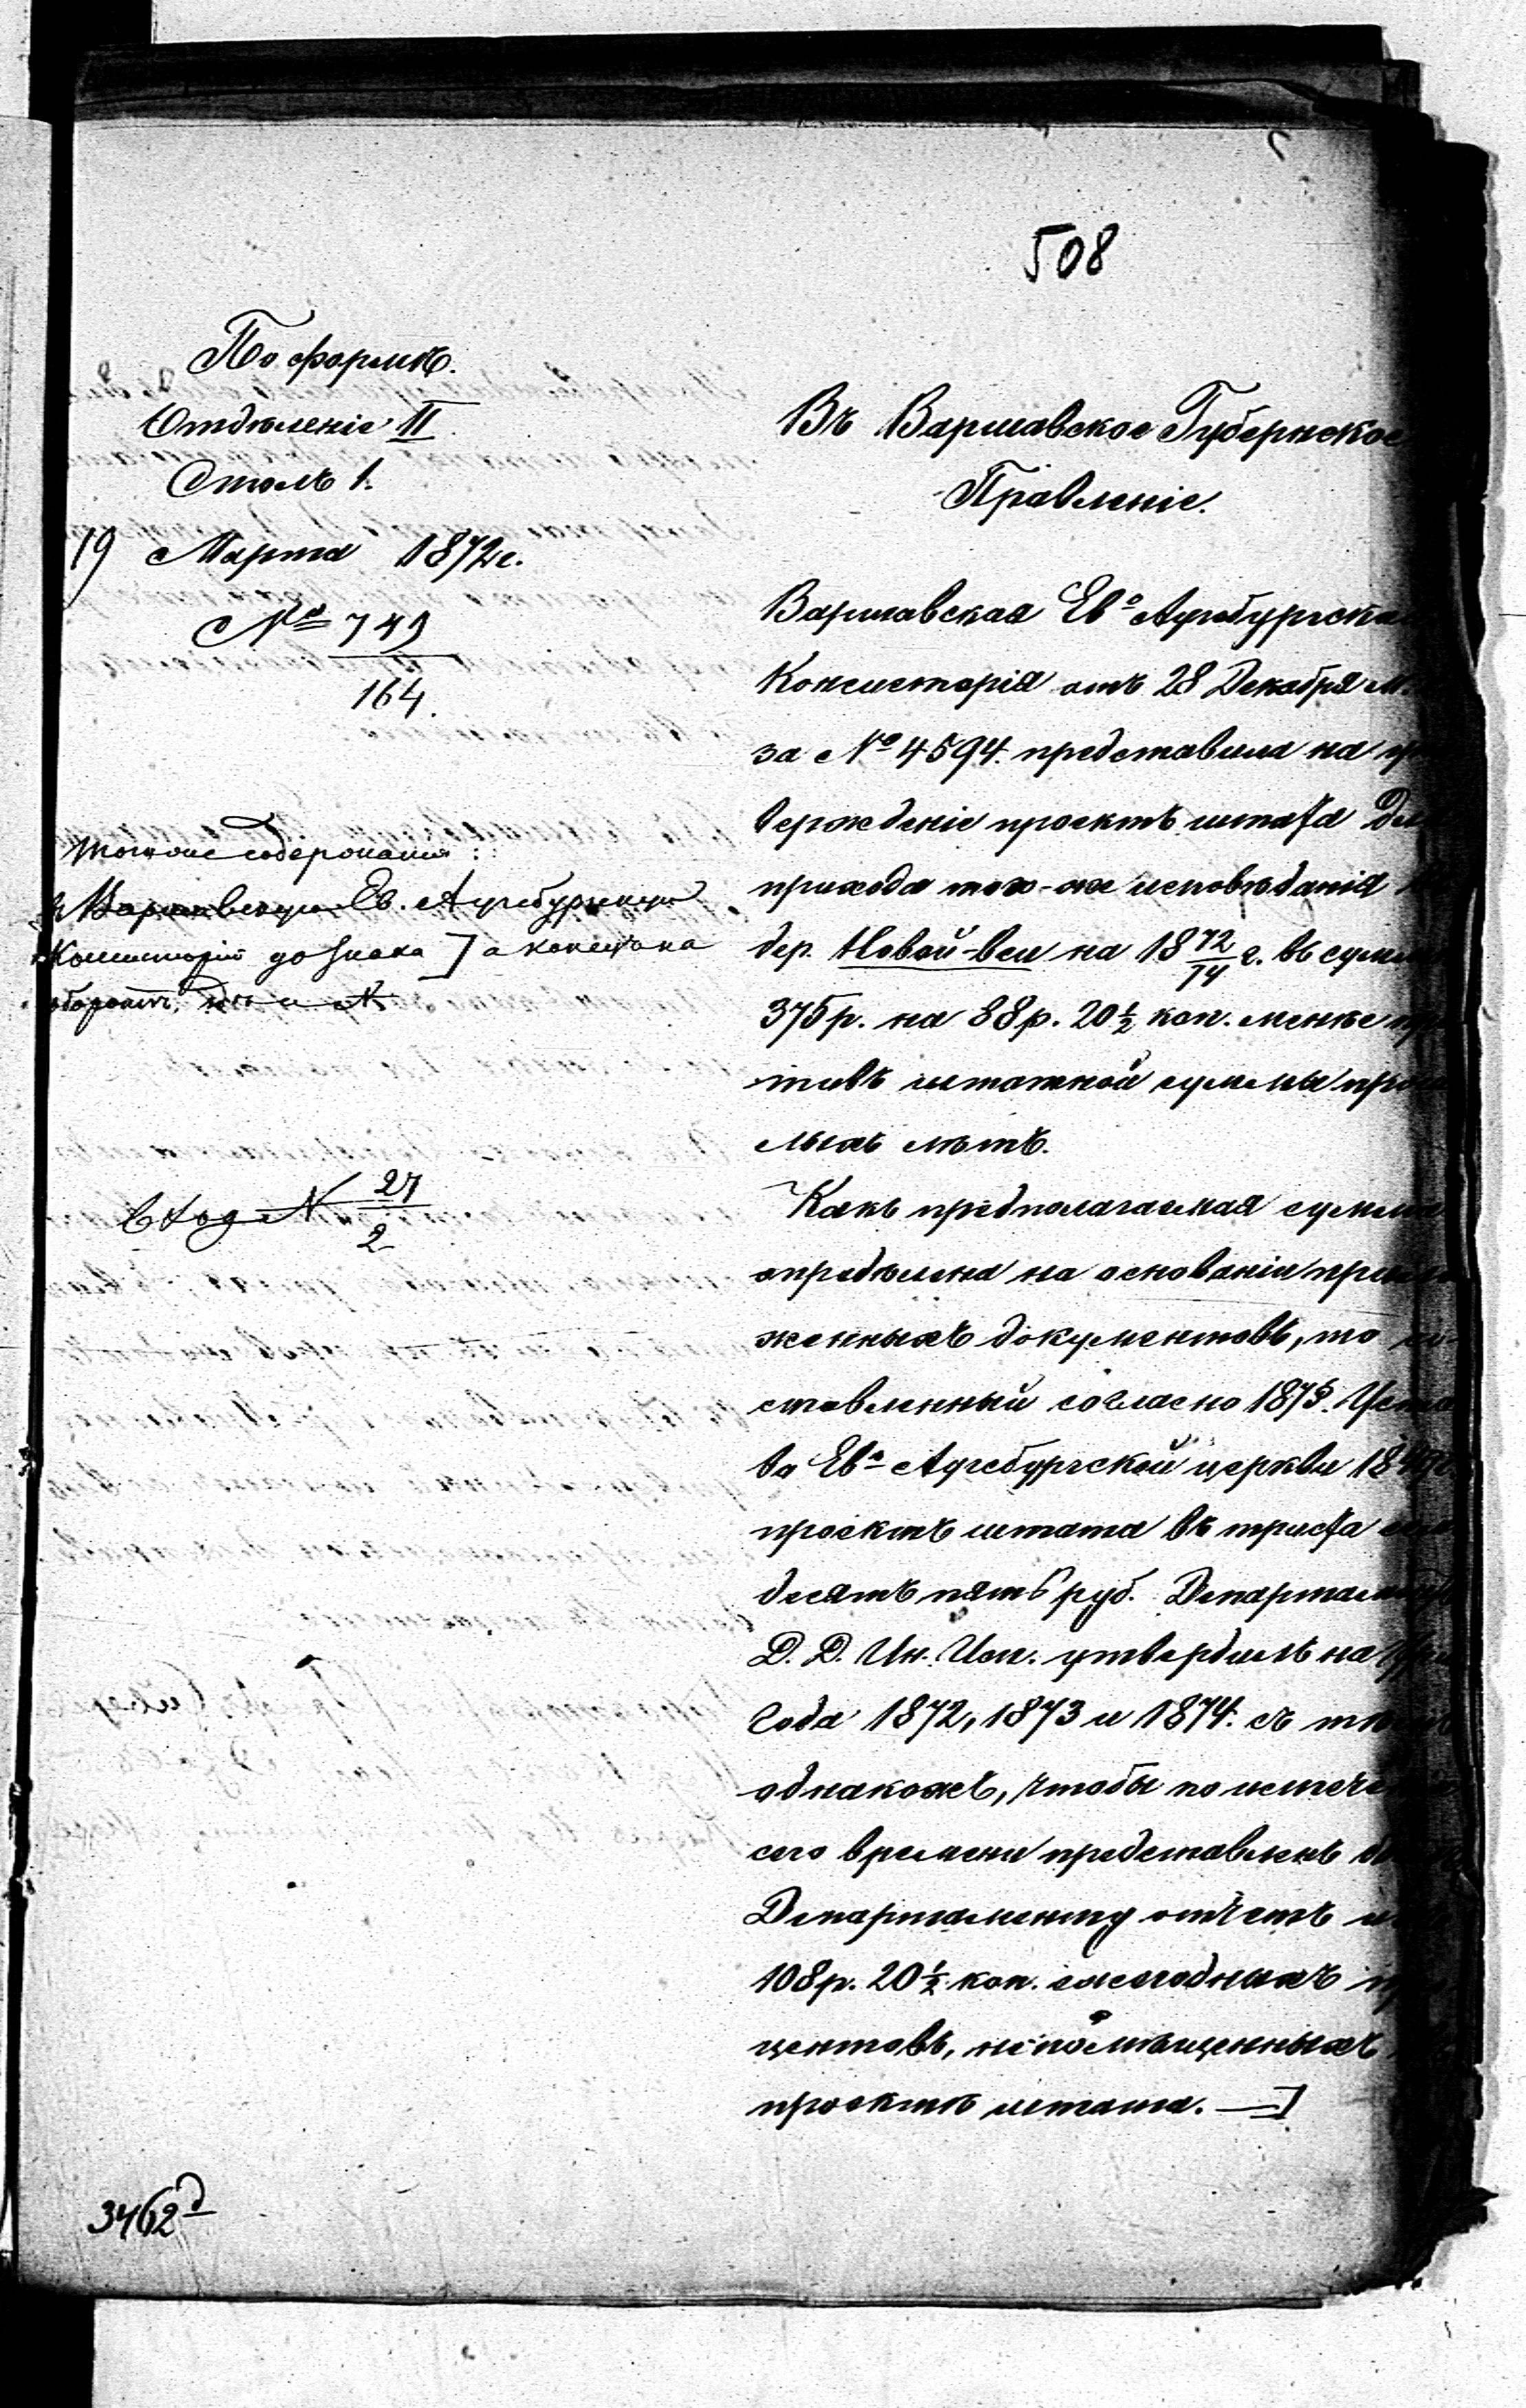 508
По формѣ.
Отдѣленіе II
Столъ 1.
19 Марта 1872 г.
№ 749
164.
тожное содержанія:
Варшавскую Ев. Аугсбургскую
Консисторію до знака ] а конец на
оборотѣ.
вход N 27
2
3462
Въ Варшавское Губернское
Правленіе.
Варшавская Ев⁰ Аугсбургская
Консисторія отъ 28 Декабря м.
за № 4594. представила на у
вержденіе проектъ штата для
прихода того-же исповѣданія
дер. Новой-вси на 18 72/74 г. въ сумм
375 р. на 88 р. 20 ½ коп. менѣе про
тивъ штатной суммы прош
лыхъ лѣтъ.
Какъ предполагаемая сумма
опредѣлена на основаніи прило
женныхъ документовъ, то со
ставленный согласно 187 §. Уста
ва Ев⁰ Аугсбургской церкви 1849
проектъ штата въ триста сем
десятъ пять руб. Департамент
Д. Д. Ин. Исп. утвердилъ на три
года 1872, 1873 и 1874. съ тѣм
однакожъ, чтобы по истече
сего времени представленъ
Департаменту отчетъ
108 р. 20 ½ коп. ежегодныхъ пр
центовъ, непомѣщенныхъ
проектѣ штата. —]